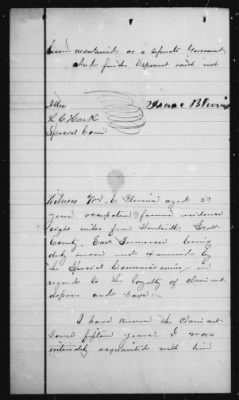 been maintained as a separate Government
And further Deponent said not
Isaac Blevins
Attest
L C Houk
Special Com
Witness Wm C Blevins aged 25
years occupation farmer residence
eight miles from Huntsville Scott
County, East Tennessee being
duly sworn and examined by
the Special Commissioner in
regards to the loyalty of claimant
deposes and says:
I have known the Claimant
some fifteen years. I was
intimately acquainted with him